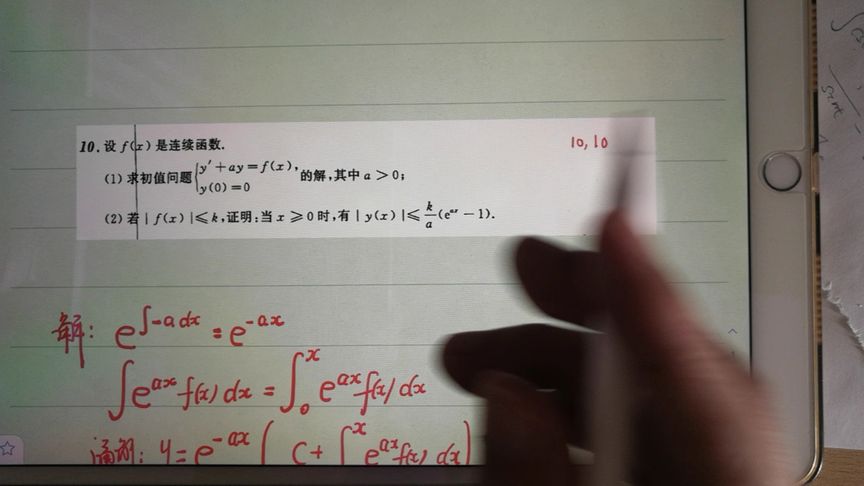 10. 设 f(x) 是连续函数.
10, 10
(1) 求初值问题 { y′ + ay = f(x), y(0) = 0 的解,其中 a > 0;
(2) 若 | f(x) | ≤ k,证明:当 x ≥ 0 时,有 | y(x) | ≤ k/a (e^{ax} − 1).
解: e^{∫-a dx} = e^{-ax}
∫e^{ax} f(x) dx = ∫_0^x e^{ax} f(x) dx
通解: y = e^{-ax} ( C + ∫^x e^{ax} f(x) dx )